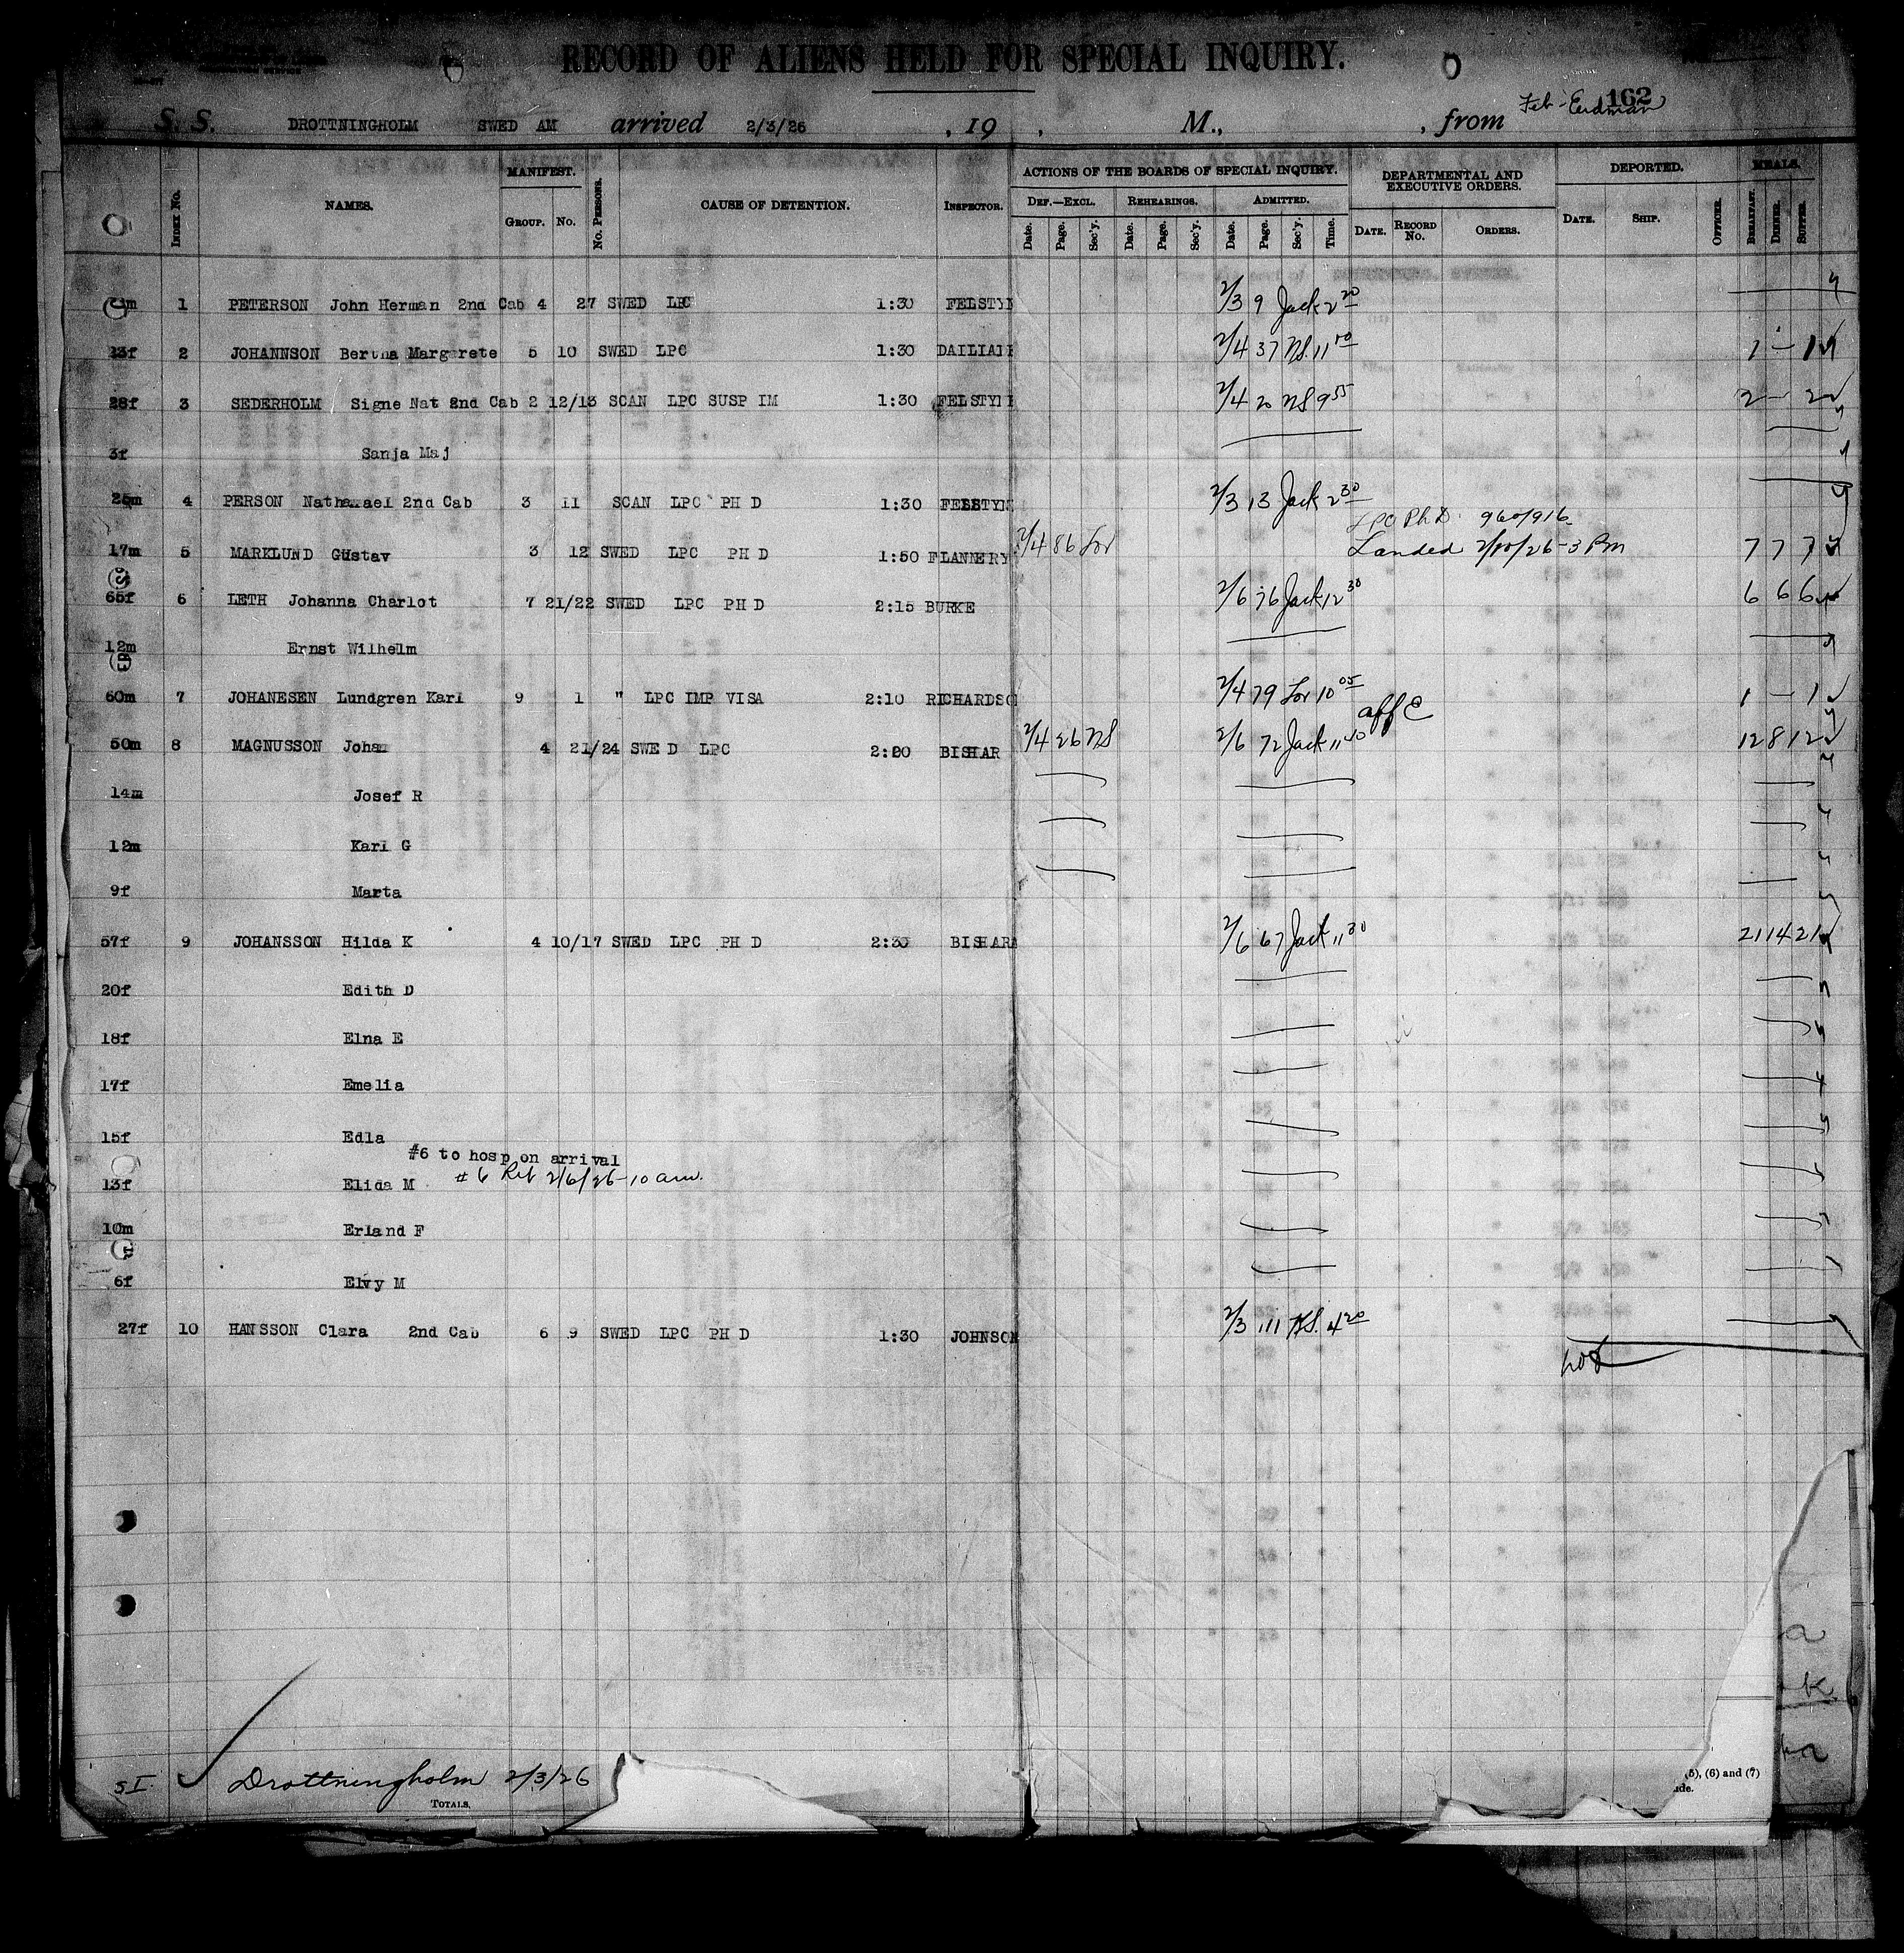 RECORD OF ALIENS HELD FOR SPECIAL INQUIRY.
162
Feb - Erdman
S. S. DROTTNINGHOLM SWED AM arrived 2/3/26 , 19 , M., , from
INDEX NO. NAMES. MANIFEST. GROUP. NO. NO. PERSONS. CAUSE OF DETENTION. INSPECTOR. ACTIONS OF THE BOARDS OF SPECIAL INQUIRY. DEF.—EXCL. Date. Page. Sec'y. REHEARINGS. Date. Page. Sec'y. ADMITTED. Date. Page. Sec'y. Time. DEPARTMENTAL AND EXECUTIVE ORDERS. DATE. RECORD NO. ORDERS. DEPORTED. DATE. SHIP. OFFICER. MEALS. BREAKFAST. DINNER. SUPPER.
1 PETERSON John Herman 2nd Cab 4 27 SWED LPC 1:30 FELSTYN 2/3 9 Jack 2 20
23f 2 JOHANNSON Bertha Margarete 5 10 SWED LPC 1:30 2/4 37 NS. 11 10 1 – 1
28f 3 SEDERHOLM Signe Nat 2nd Cab 2 12/13 SCAN LPC SUSP IM 1:30 FELSTYN 2/4 20 NS 9 55 2 – 2
3f Sanja Maj
25m 4 PERSON Nathanael 2nd Cab 3 11 SCAN LPC PH D 1:30 FELSTYN 2/3 13 Jack 2 30
LPC Ph D. 960/916
17m 5 MARKLUND Gustav 3 12 SWED LPC PH D 1:50 FLANNERY 2/4 86 Lor Landed 2/10/26 - 3 Pm 7 7 7
65f 6 LETH Johanna Charlot 7 21/22 SWED LPC PH D 2:15 BURKE 2/6 76 Jack 12 30 6 6 6
12m Ernst Wilhelm
60m 7 JOHANESEN Lundgren Karl 9 1 " LPC IMP VISA 2:10 RICHARDSO 2/4 79 Lor 10 05 1 – 1
aff C
50m 8 MAGNUSSON Johan 4 21/24 SWED LPC 2:20 BISHAR 2/4 26 NS 2/6 72 Jack 11 40 12 8 12
14m Josef R
12m Karl G
9f Marta
57f 9 JOHANSSON Hilda K 4 10/17 SWED LPC PH D 2:30 BISHARA 2/6 67 Jack 11 30 21 14 21
20f Edith D
18f Elna E
17f Emelia
15f Edla
#6 to hosp on arrival
# 6 Ret 2/6/26 - 10 am.
13f Elida M
10m Erland F
6f Elvy M
27f 10 HANSSON Clara 2nd Cab 6 9 SWED LPC PH D 1:30 JOHNSON 2/3 111 4 20
SI Drottningholm 2/3/26
TOTALS.
(5), (6) and (7)